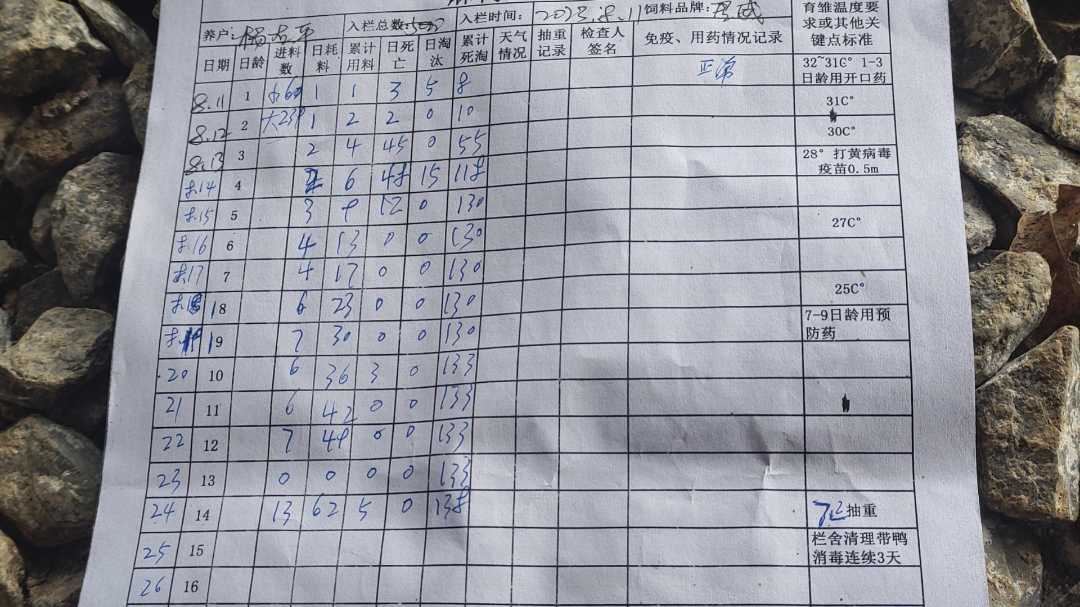 养户: 入栏总数: 入栏时间: 2023.8.11 饲料品牌: 育雏温度要求或其他关键点标准
日期 日龄 进料数 日耗料 累计用料 日死亡 日淘汰 累计死淘 天气情况 抽重记录 检查人签名 免疫、用药情况记录
8.11 1 1 1 3 5 8 正常 32~31C° 1-3日龄用开口药
8.12 2 1 2 2 0 10 31C°
8.13 3 2 4 45 0 55 30C°
8.14 4 2 6 48 15 118 28° 打黄病毒疫苗0.5m
8.15 5 3 9 12 0 130
8.16 6 4 13 0 0 130 27C°
8.17 7 4 17 0 0 130
8.18 8 6 23 0 0 130 25C°
8.19 9 7 30 0 0 130 7-9日龄用预防药
20 10 6 36 3 0 133
21 11 6 42 0 0 133
22 12 7 49 0 0 133
23 13 0 0 0 0 133
24 14 13 62 5 0 138 抽重
25 15 栏舍清理带鸭消毒连续3天
26 16